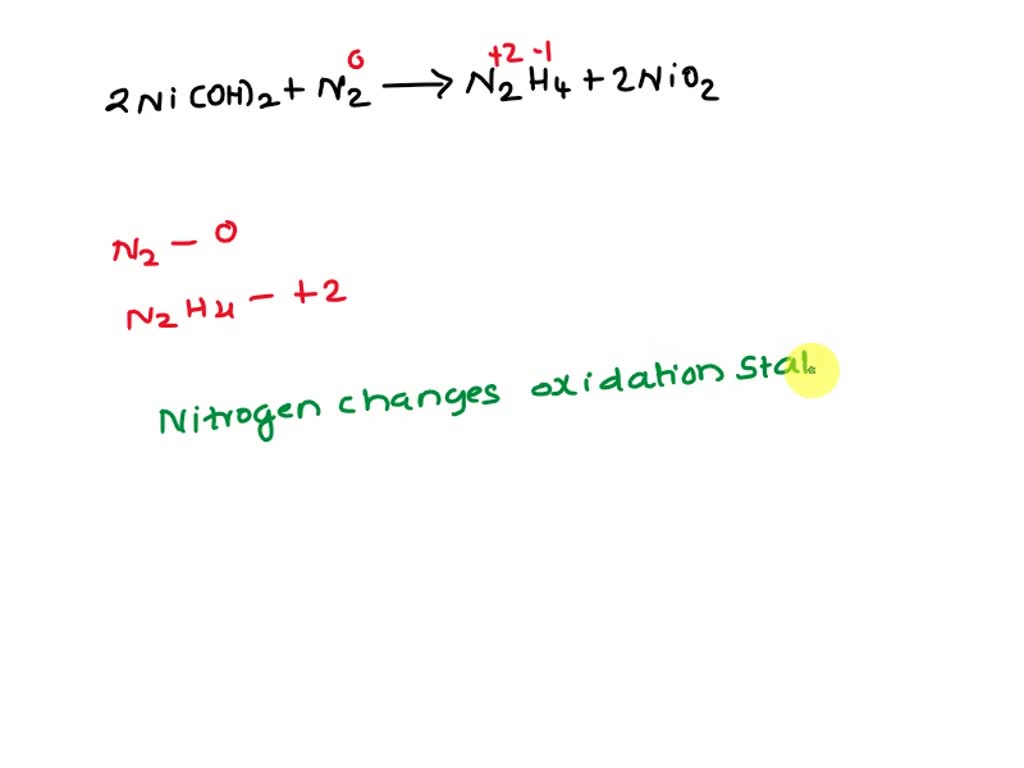 0 +2 -1
2Ni(OH)2 + N2 → N2H4 + 2NiO2
N2 - 0
N2H4 - +2
Nitrogen changes oxidation stat